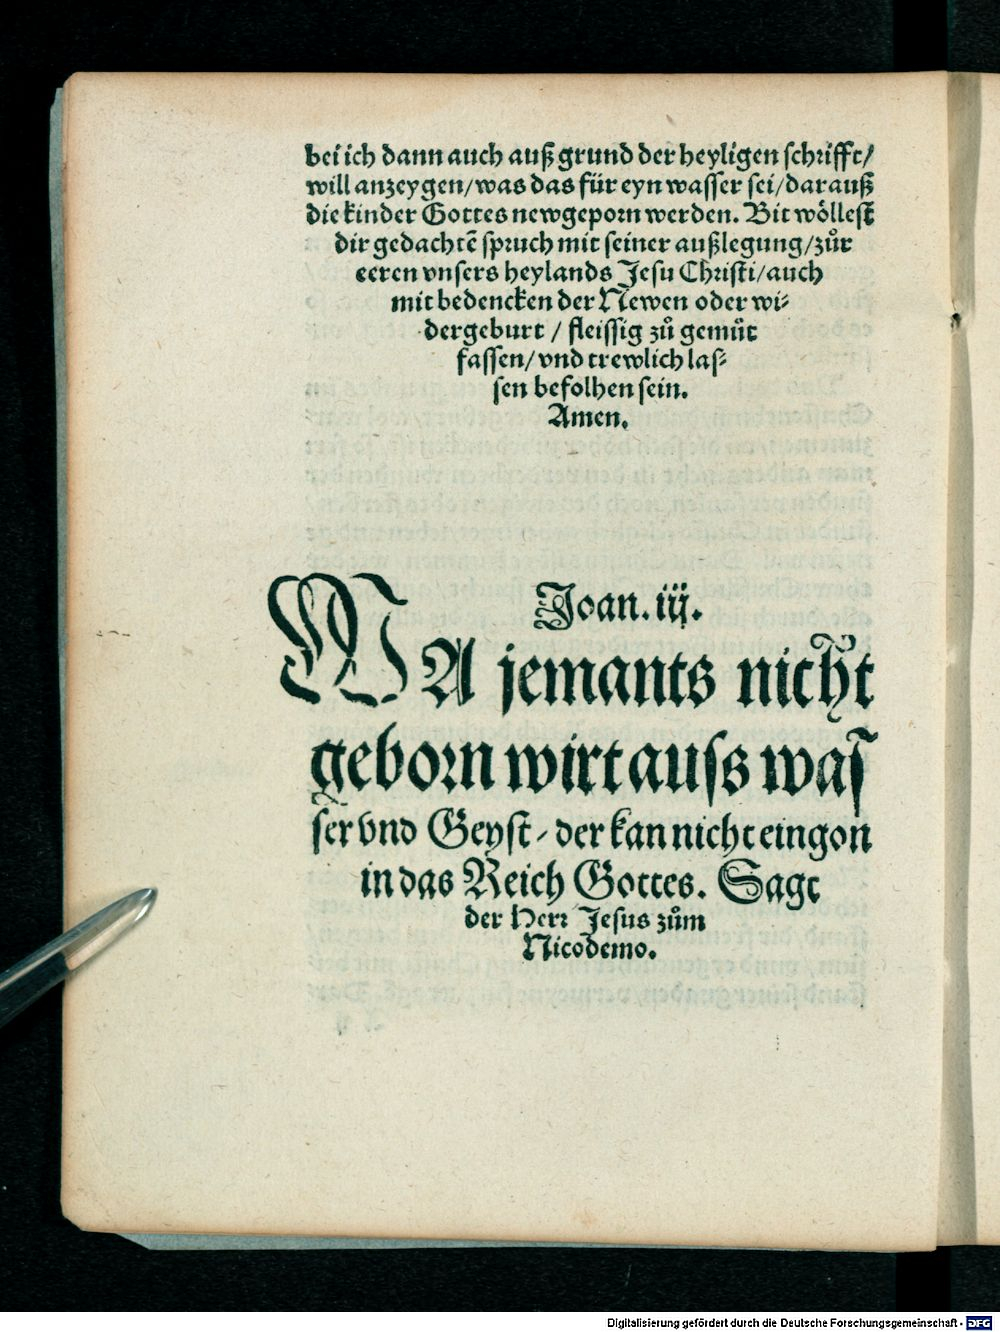 bei ich dann auch auß grund der heyligen schrifft/
will anzeygen/was das für eyn wasser sei/darauß
die kinder Gottes newgeporn werden. Bit wöllest
dir gedachtẽ spruch mit seiner außlegung/zůr
eeren vnsers heylands Jesu Christi/auch
mit bedencken der Newen oder wi-
dergeburt / fleissig zů gemüt
fassen/vnd trewlich las-
sen befolhen sein.
Amen.
Joan. iij.
WA jemants nicht
geborn wirt auss was
ser vnd Geyst/der kan nicht eingon
in das Reich Gottes. Sagt
der Herr Jesus zům
Nicodemo.
Digitalisierung gefördert durch die Deutsche Forschungsgemeinschaft - DFG